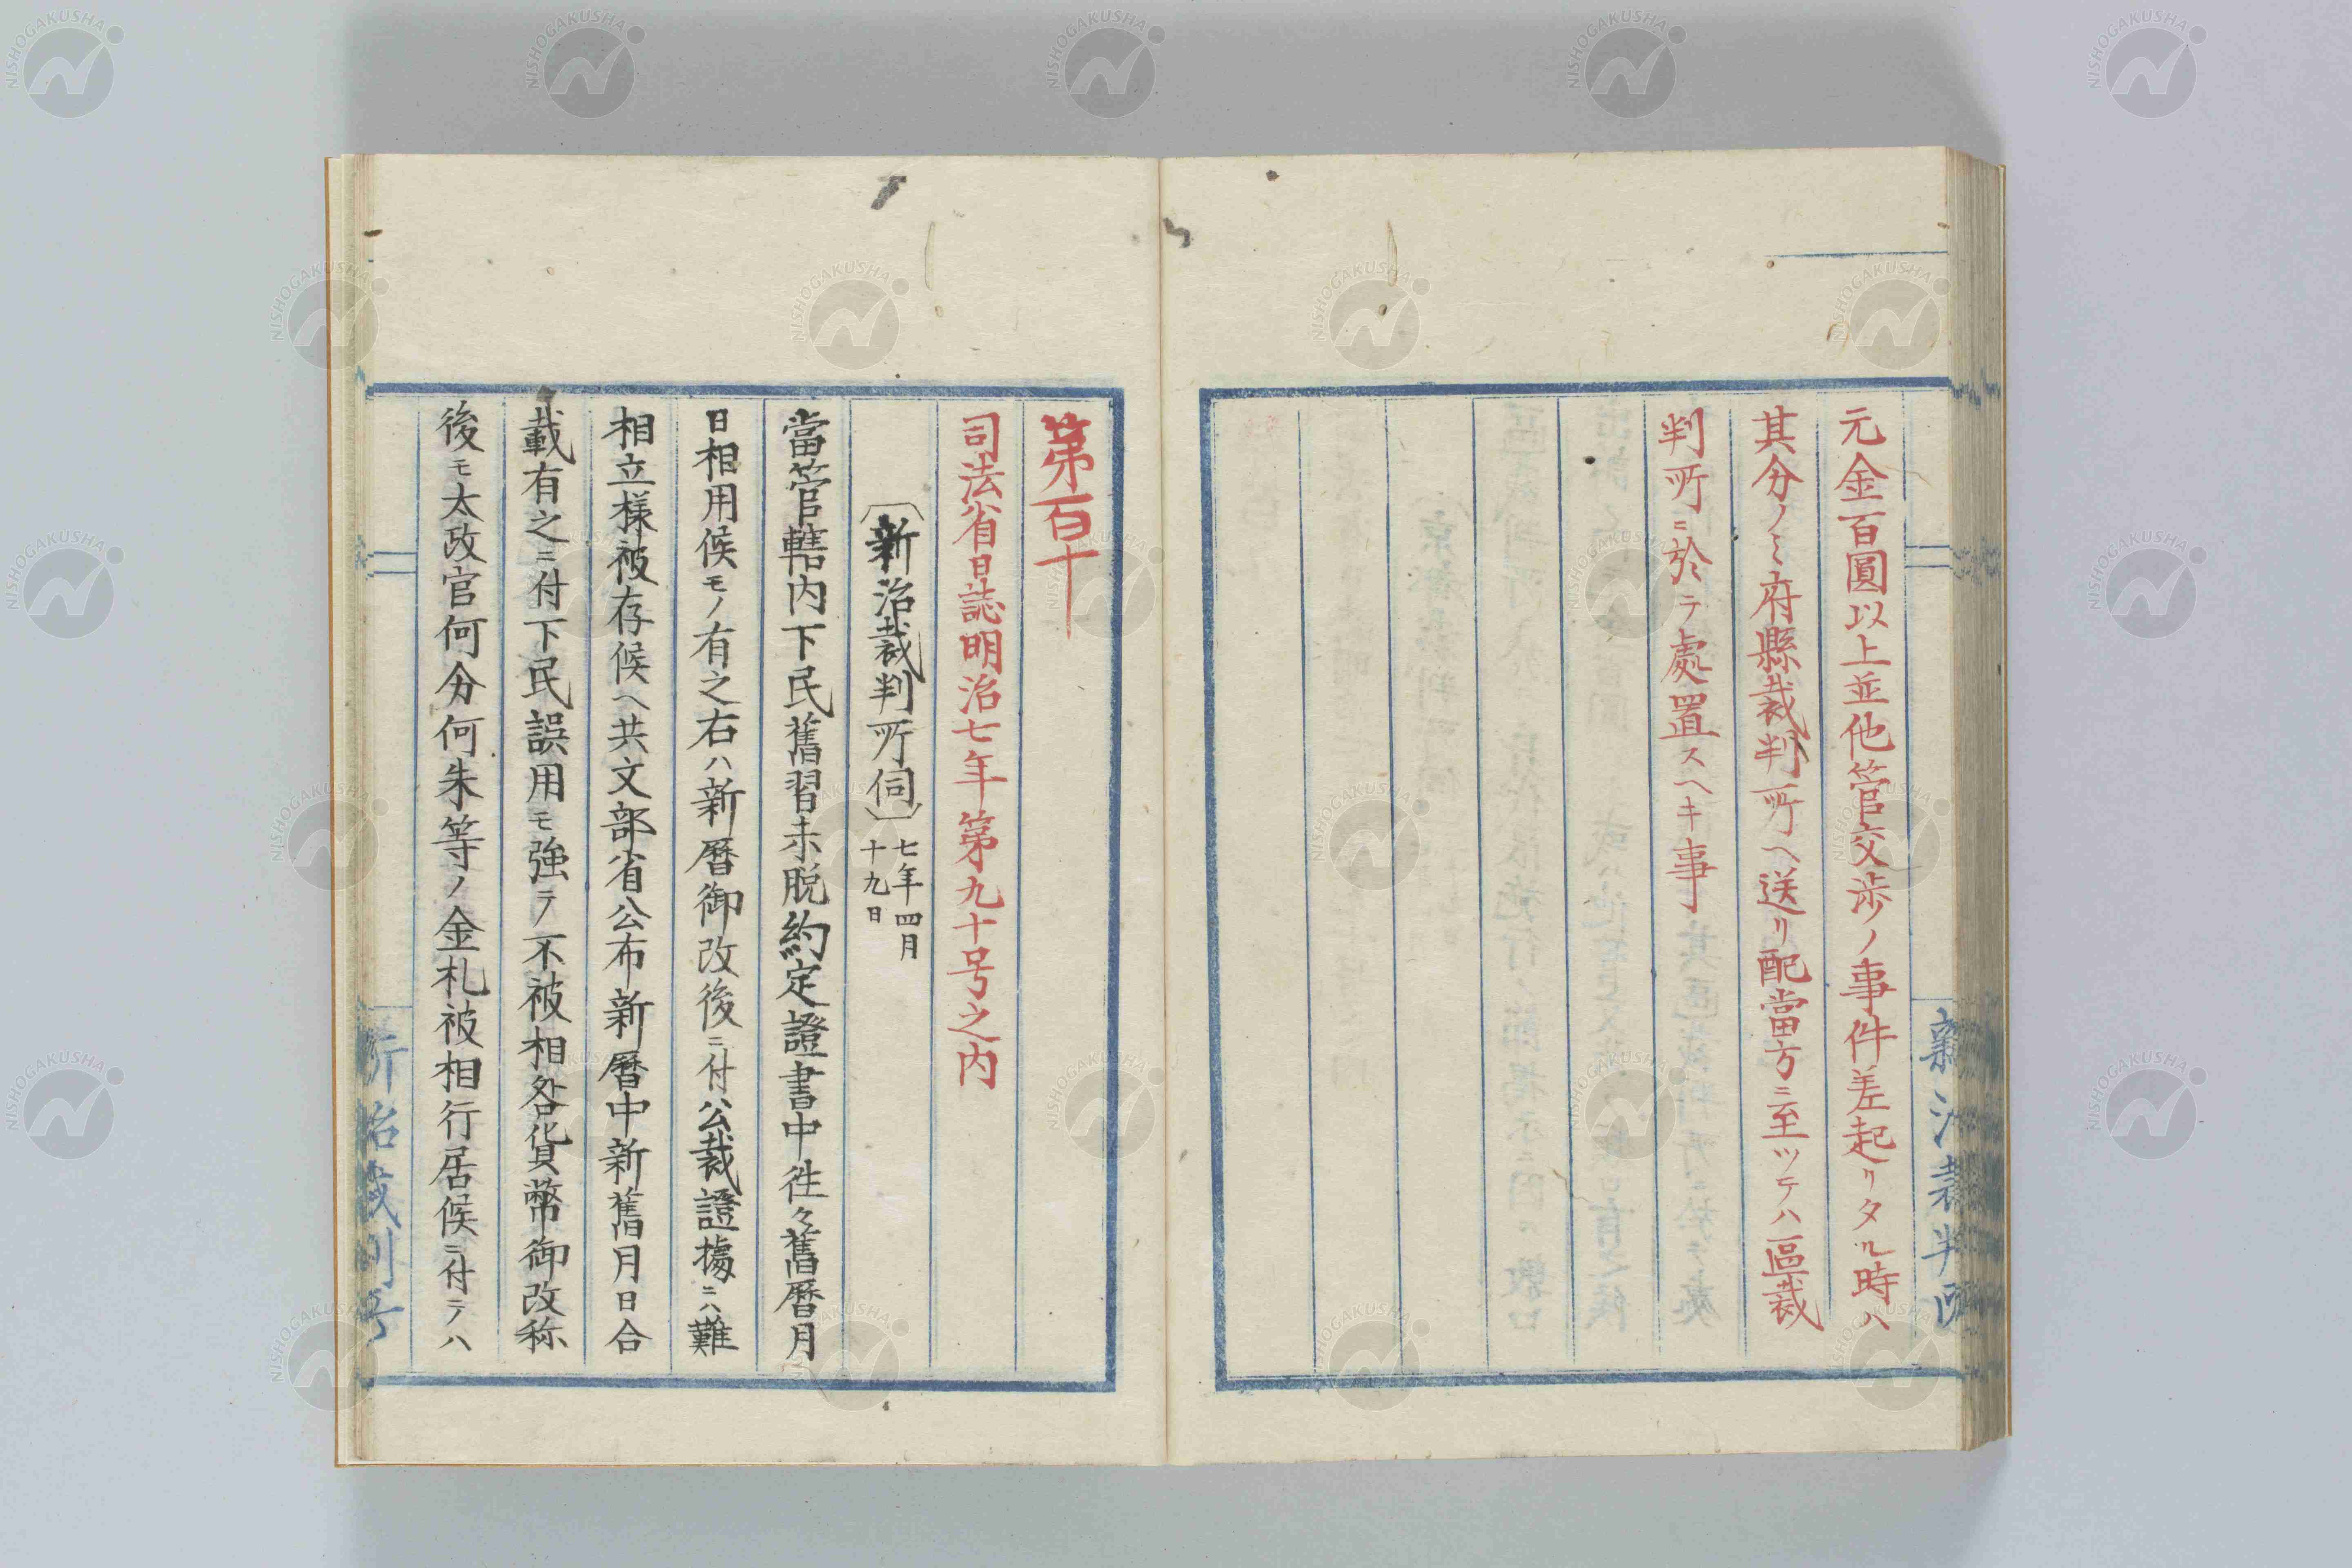 元金百圓以上並他管交渉ノ事件差起リタル時ハ
其分ノミ府縣裁判所ヘ送リ配當方ニ至ツテハ區裁
判所ニ於テ處置スヘキ事
第百十
司法省日誌明治七年第九十号之内
〔新治裁判所伺〕七年四月
十九日
當管轄内下民舊習未脱約定證書中徃々舊暦月
日相用候モノ有之右ハ新暦御改後ニ付公裁證據ニハ難
相立様被存候ヘ共文部省公布新暦中新舊月日合
載有之ニ付下民誤用モ強テ不被相咎貨幣御改称
後モ太政官何分何朱等ノ金札被相行居候ニ付テハ
新治裁判所
NISHOGAKUSHA